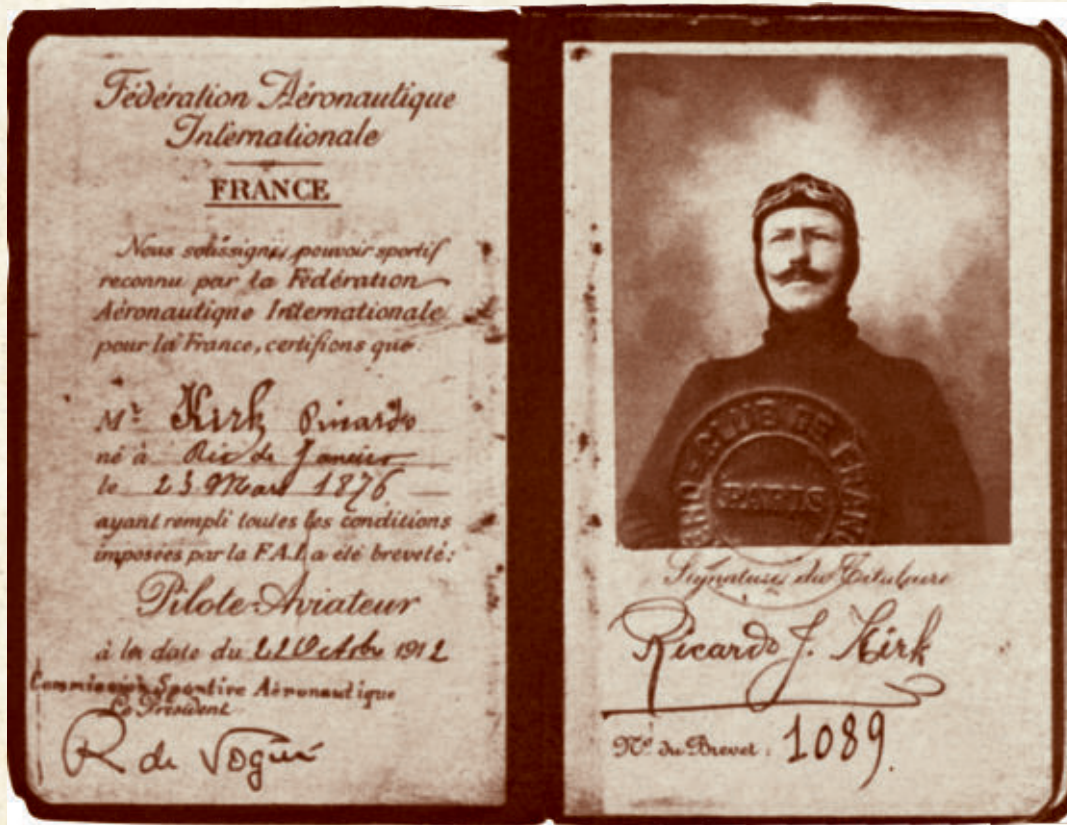 Fédération Aéronautique
Internationale
FRANCE
Nous soussignés, pouvoir sportif
reconnu par la Fédération
Aéronautique Internationale
pour la France, certifions que:
Mr Kirk Ricardo
né à Rio de Janeiro
le 23 Mars 1876
ayant rempli toutes les conditions
imposées par la F.A.I. a été breveté:
Pilote-Aviateur
à la date du 22 Octobre 1912
Commission Sportive Aéronautique
Le Président
R de Vogüé
AERO-CLUB DE FRANCE
PARIS
Signature du Titulaire
Ricardo J. Kirk
No du Brevet: 1089.